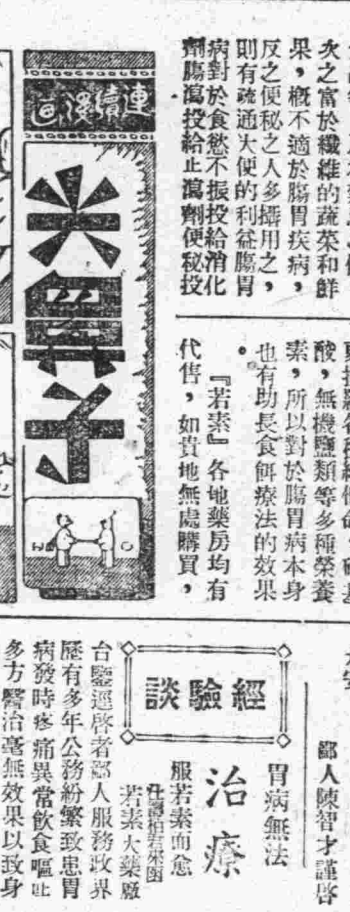 次之富於纖維的蔬菜和鮮
果，概不適於腸胃疾病，
反之便秘之人多攝用之，
則有疏通大便的利益腸胃
病對於食慾不振投給消化
劑腸瀉投給止瀉劑便秘投
連續漫画
酸，無機鹽類等多種榮養
素，所以對於腸胃病本身
也有助長食餌療法的效果
。
『若素』各地藥房均有
代售，如貴地無處購買，
鄙人陳智才謹啓
經驗談
胃病無法
治療
服若素而愈
若素大藥廠
台鑒逕啓者鄙人服務政界
歷有多年公務紛繁致患胃
病發時疼痛異常飲食嘔吐
多方醫治毫無效果以致身